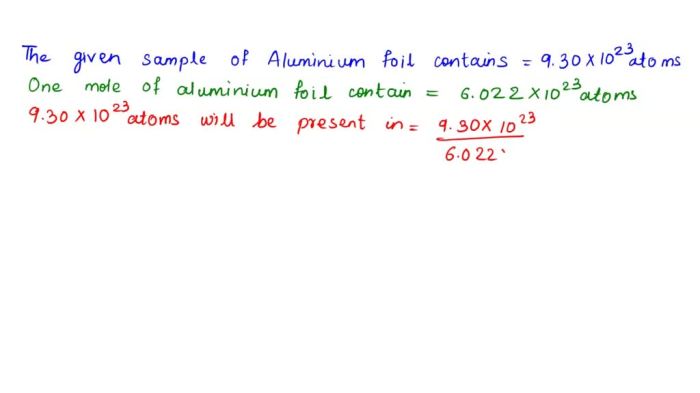 The given sample of Aluminium foil contains = 9.30 × 10²³ atoms
One mole of aluminium foil contain = 6.022 × 10²³ atoms
9.30 × 10²³ atoms will be present in = 9.30 × 10²³
6.022